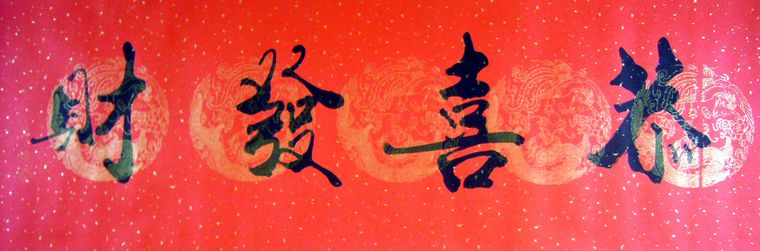 恭喜發財